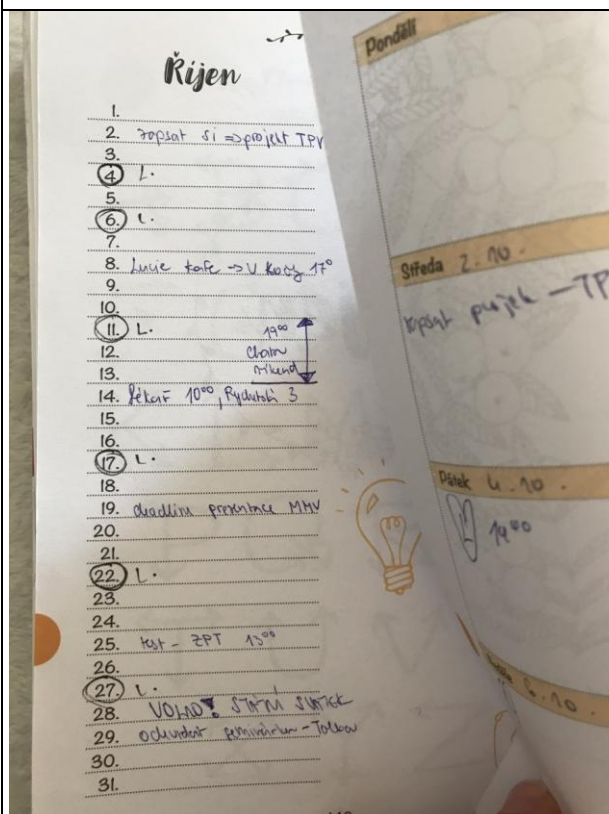 Říjen
1.
2. zapsat si => projekt TPV
3.
4. L.
5.
6. L.
7.
8. Lucie kafe -> V 17⁰
9.
10.
11. L. 19⁰⁰
12. Chata
13. víkend
14. lékař 10⁰⁰, 3
15.
16.
17. L.
18.
19. deadline prezentace MMV
20.
21.
22. L.
23.
24.
25. test - ZPT 13⁰⁰
26.
27. L.
28. VOLNO! STÁTNÍ SVÁTEK
29. odevzdat
30.
31.
Pondělí
Středa 2.10.
projek - TP
Pátek 4.10.
6.10.